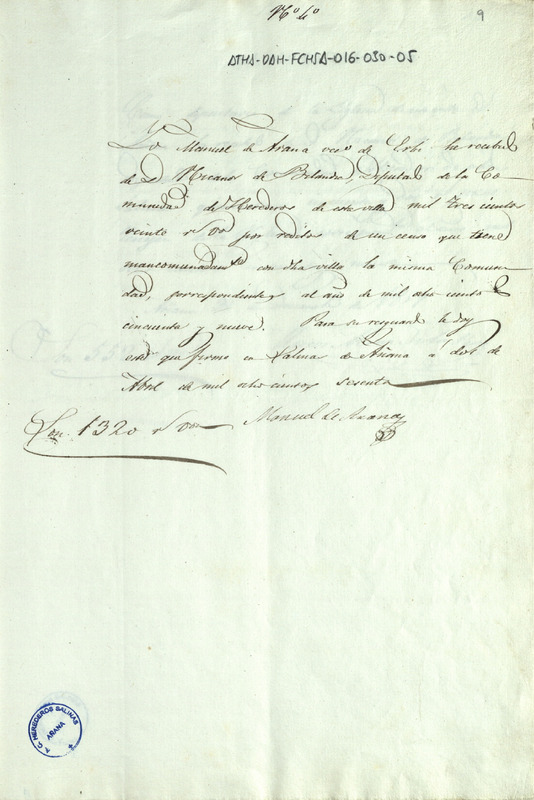 Nº 4º
9
ATHA-DAH-FCHSA-016-030-05
Yo Manuel de Arana vecº de Erbi he recibido
de D. Nicanor de Belandia, Diputado de la Co-
munidad de Herederos de esta villa mil tres cientos
veinte rs von por reditos de un censo que tiene
mancomunadamte con dha villa la misma Comuni-
dad, correspondientes al año de mil ocho cientos
cincuenta y nueve. Para su resguardo le doy
este que firmo en Salinas de Añana á dos de
Abril de mil ocho cientos sesenta
Son 1320 rs von
Manuel de Arana
A. C. HEREDEROS SALINAS
ARANA